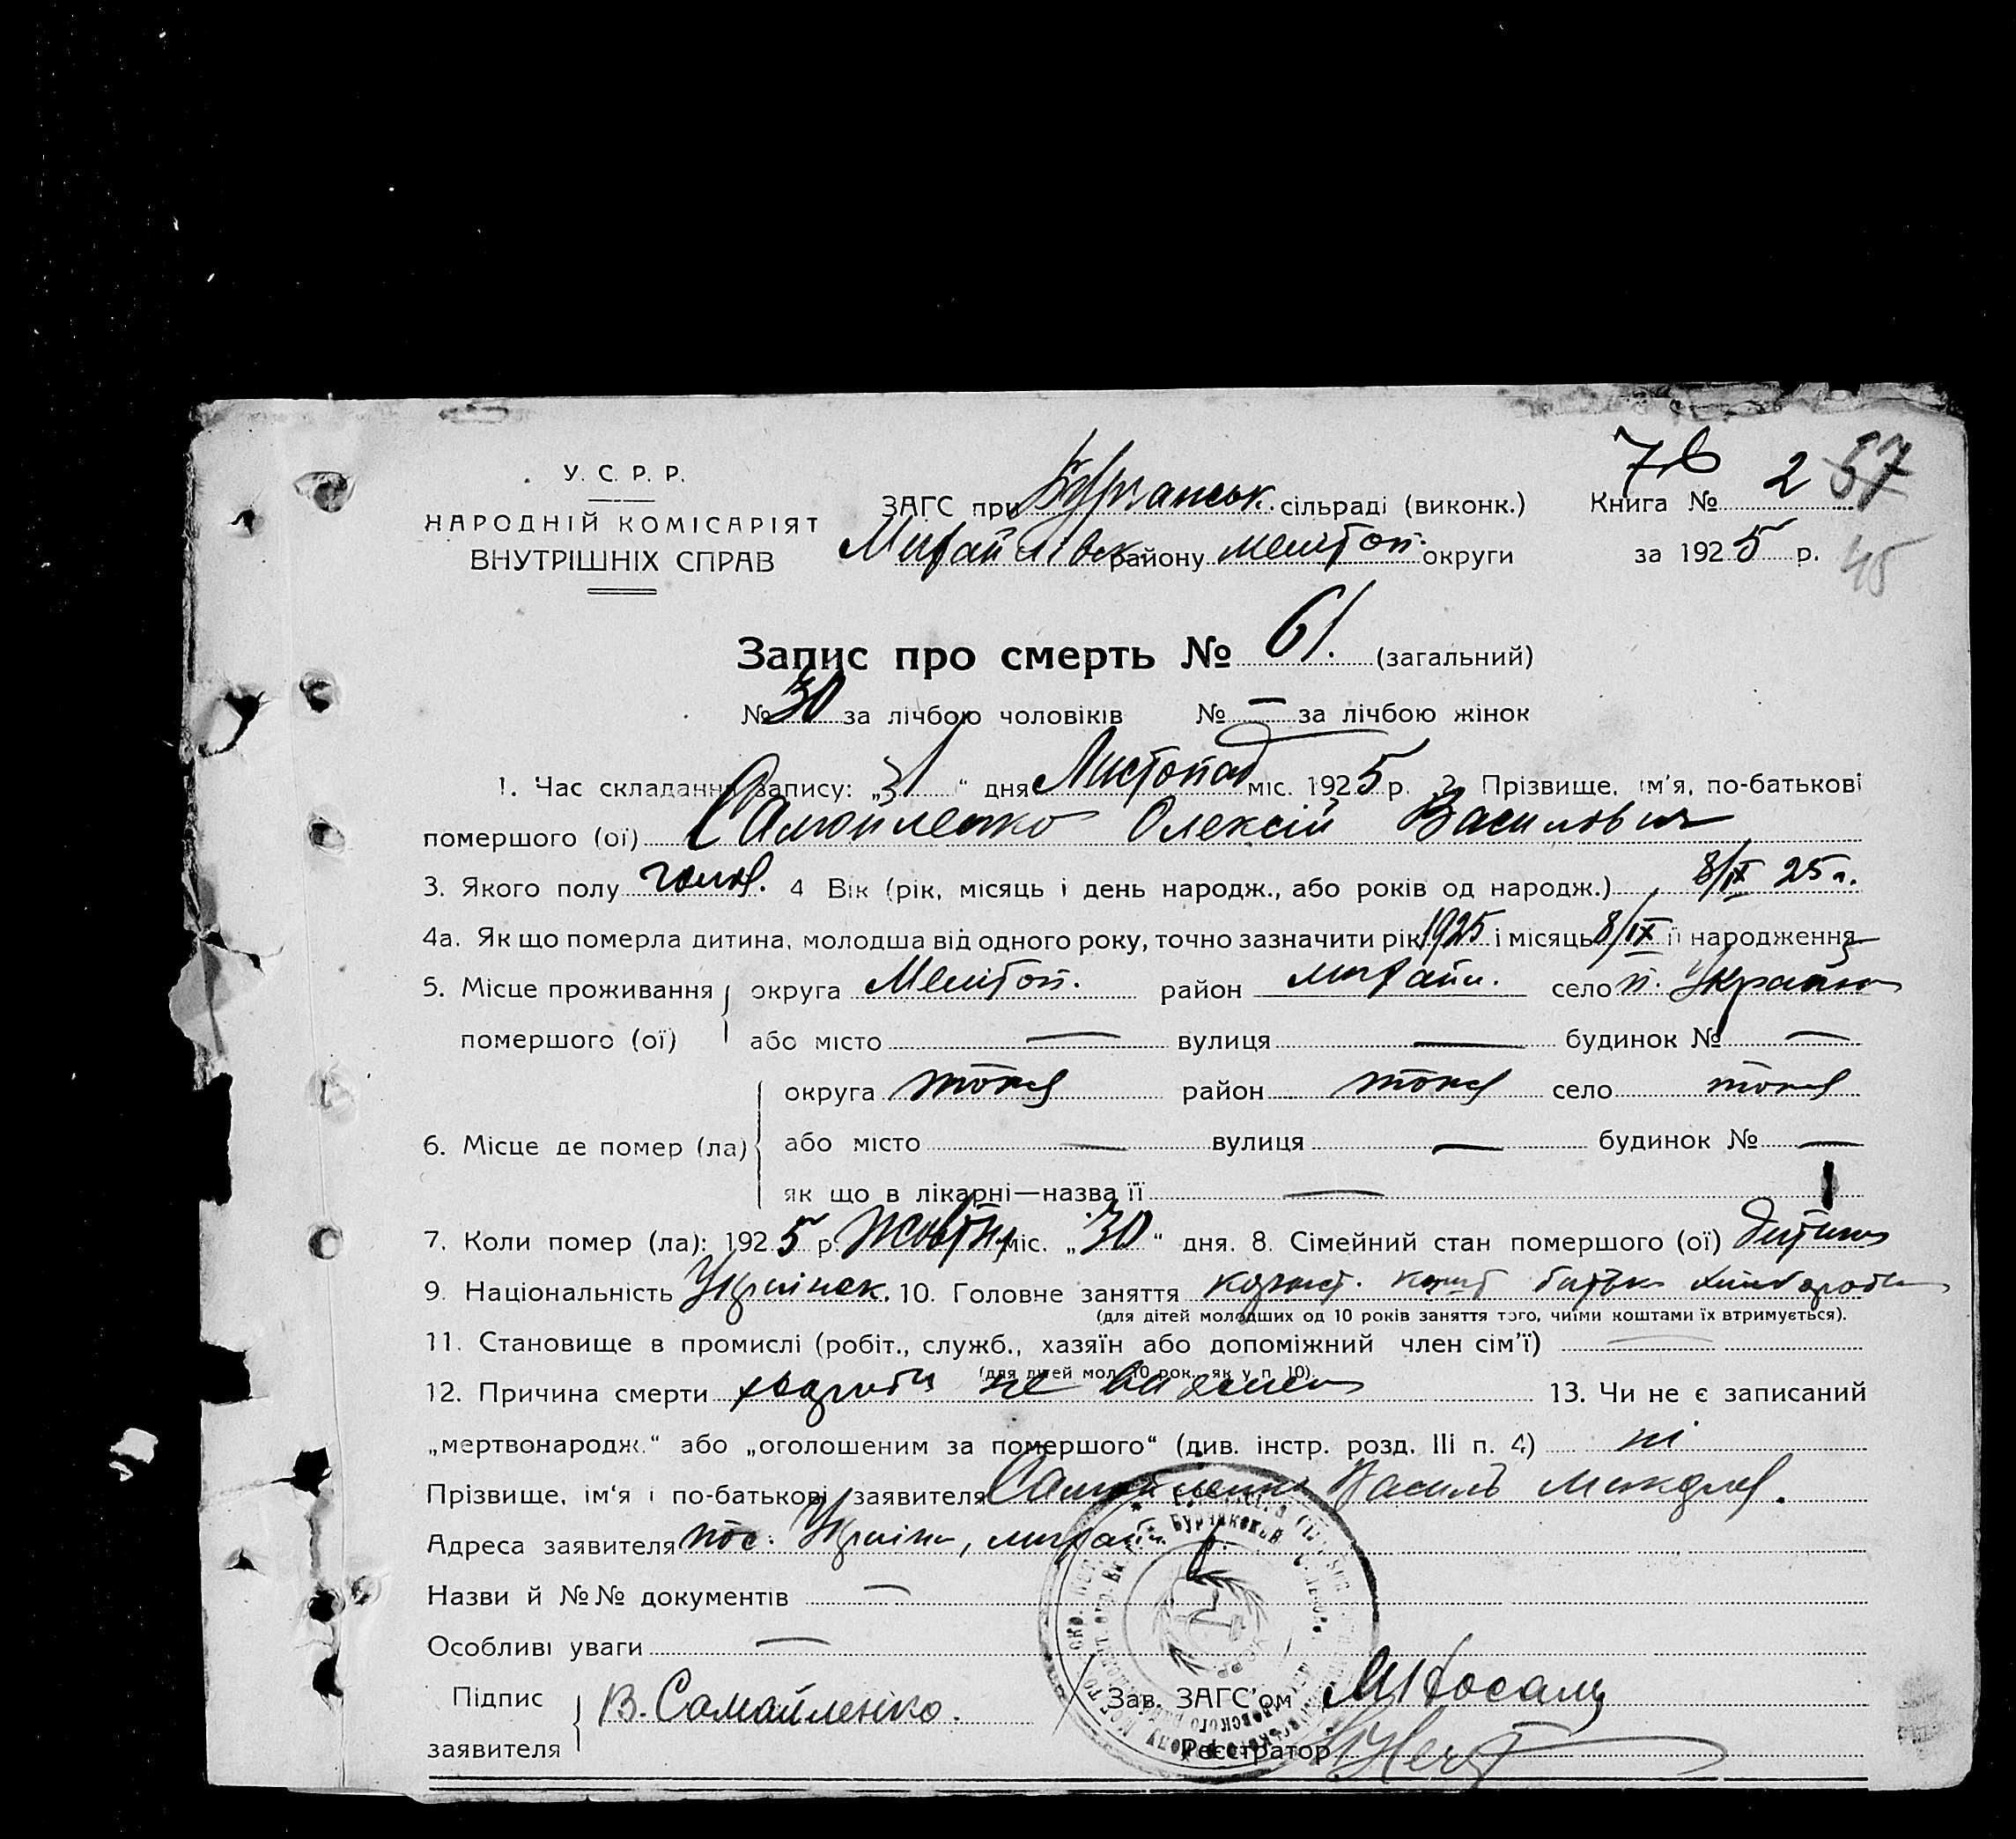 7в
У. С. Р. Р.
НАРОДНІЙ КОМІСАРІЯТ
ВНУТРІШНІХ СПРАВ
ЗАГС при Бурчанськ. сільраді (виконк.) Книга № 2 57
Михайлівск району Мелітоп. округи за 1925 р. 45
Запис про смерть № 61. (загальний)
№ 30 за лічбою чоловіків № — за лічбою жінок
1. Час складання запису: „31“ дня Листопад міс. 1925 р. 2. Прізвище, ім'я, по-батькові
помершого (ої) Самойленко Олексій Васильович
3. Якого полу чолов. 4 Вік (рік, місяць і день народж., або років од народж.) 8/IX 25 р.
4а. Як що померла дитина, молодша від одного року, точно зазначити рік 1925 і місяць 8/IX її народження
5. Місце проживання округа Мелітоп. район Михайл. село п. Україна
помершого (ої) або місто — вулиця — будинок № —
округа тоже район тоже село тоже
6. Місце де помер (ла) або місто — вулиця — будинок № —
як що в лікарні—назва її —
7. Коли помер (ла): 1925 р. Жовтня міс. „30“ дня. 8. Сімейний стан помершого (ої) дитина
9. Національність Українськ. 10. Головне заняття батька хлібороба
(для дітей молодших од 10 років заняття того, чиїми коштами їх втримується).
11. Становище в промислі (робіт., служб., хазяїн або допоміжний член сім'ї) —
(для дітей мол. 10 рок. як у п. 10).
12. Причина смерти хвороби не 13. Чи не є записаний
„мертвонародж.“ або „оголошеним за помершого“ (див. інстр. розд. III п. 4) ні
Прізвище, ім'я і по-батькові заявителя Самойленко Василь
Адреса заявителя пос. Україна, Михайл. р.
Назви й №№ документів —
Особливі уваги —
Підпис
заявителя В. Самайленко.
Зав. ЗАГС'ом
Реєстратор